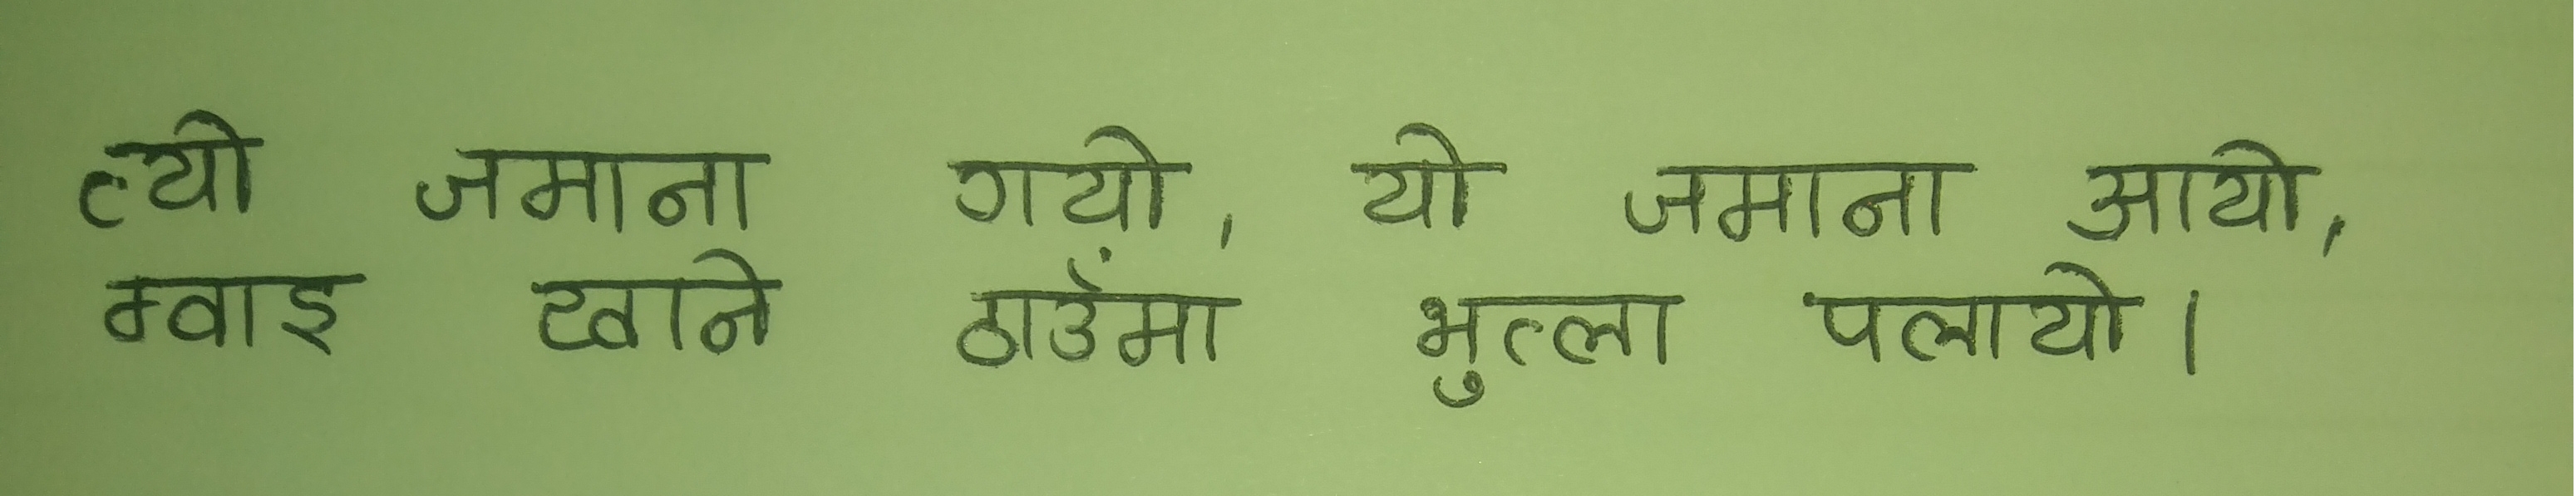 त्यो जमाना गयो, यो जमाना आयो,
म्वाइ खाने ठाउँमा भुत्ला पलायो।